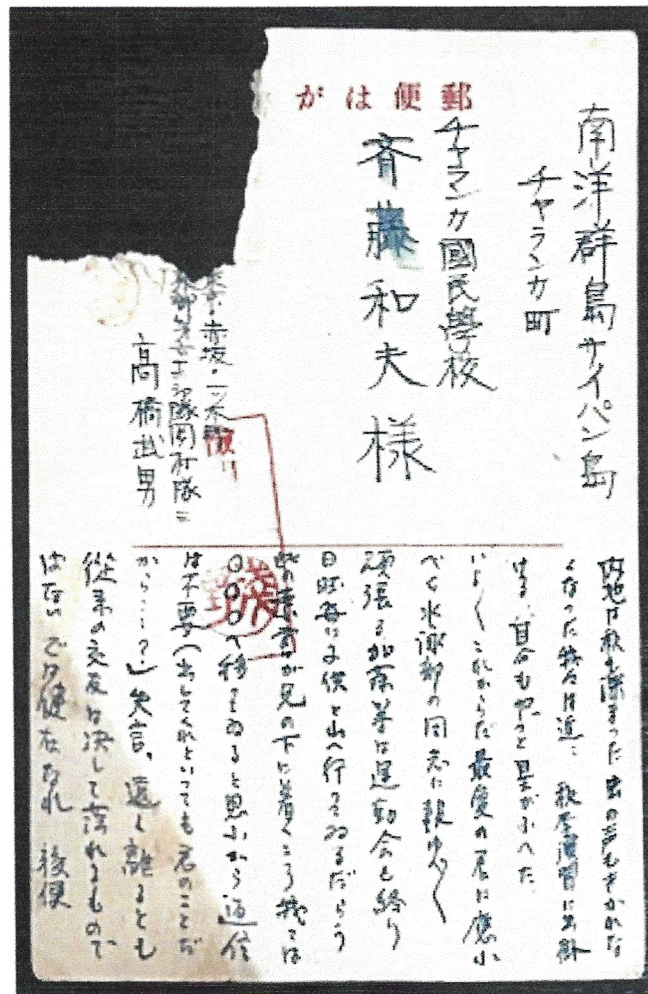 郵便はがき
南洋群島サイパン島
チャランカ町
チャランカ國民學校
斉藤和夫様
東京・赤坂・一ツ木
高橋武男
内地は秋も深まった 虫の声もきかれな
くなった 我々は近々 秋季演習に出掛
ける、自分もやっと星がふへた
いよ〱これからだ 最愛の君に應ふ
べく 水泳部の同志に報ゆべく
頑張る 加藤等は運動会も終り
日曜毎に子供と山へ行ってゐるだらう
此の葉書が兄の下に着くころ我々は
〇〇〇へ移ってゐると思ふから返信
は不要(出してくれといっても君のことだ
から…?)失言。遠く離るとも
従来の交友は決して薄れるもので
はない では健在なれ 後便